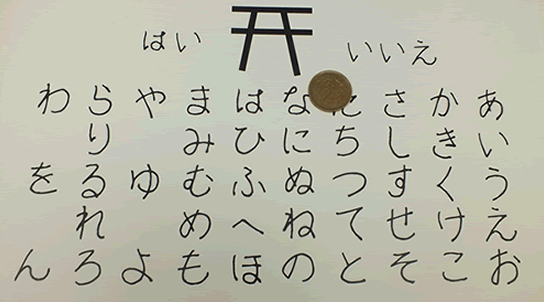 はい
いいえ
あいうえお
かきくけこ
さしすせそ
ちつてと
なにぬねの
はひふへほ
まみむめも
やゆよ
らりるれろ
わをん